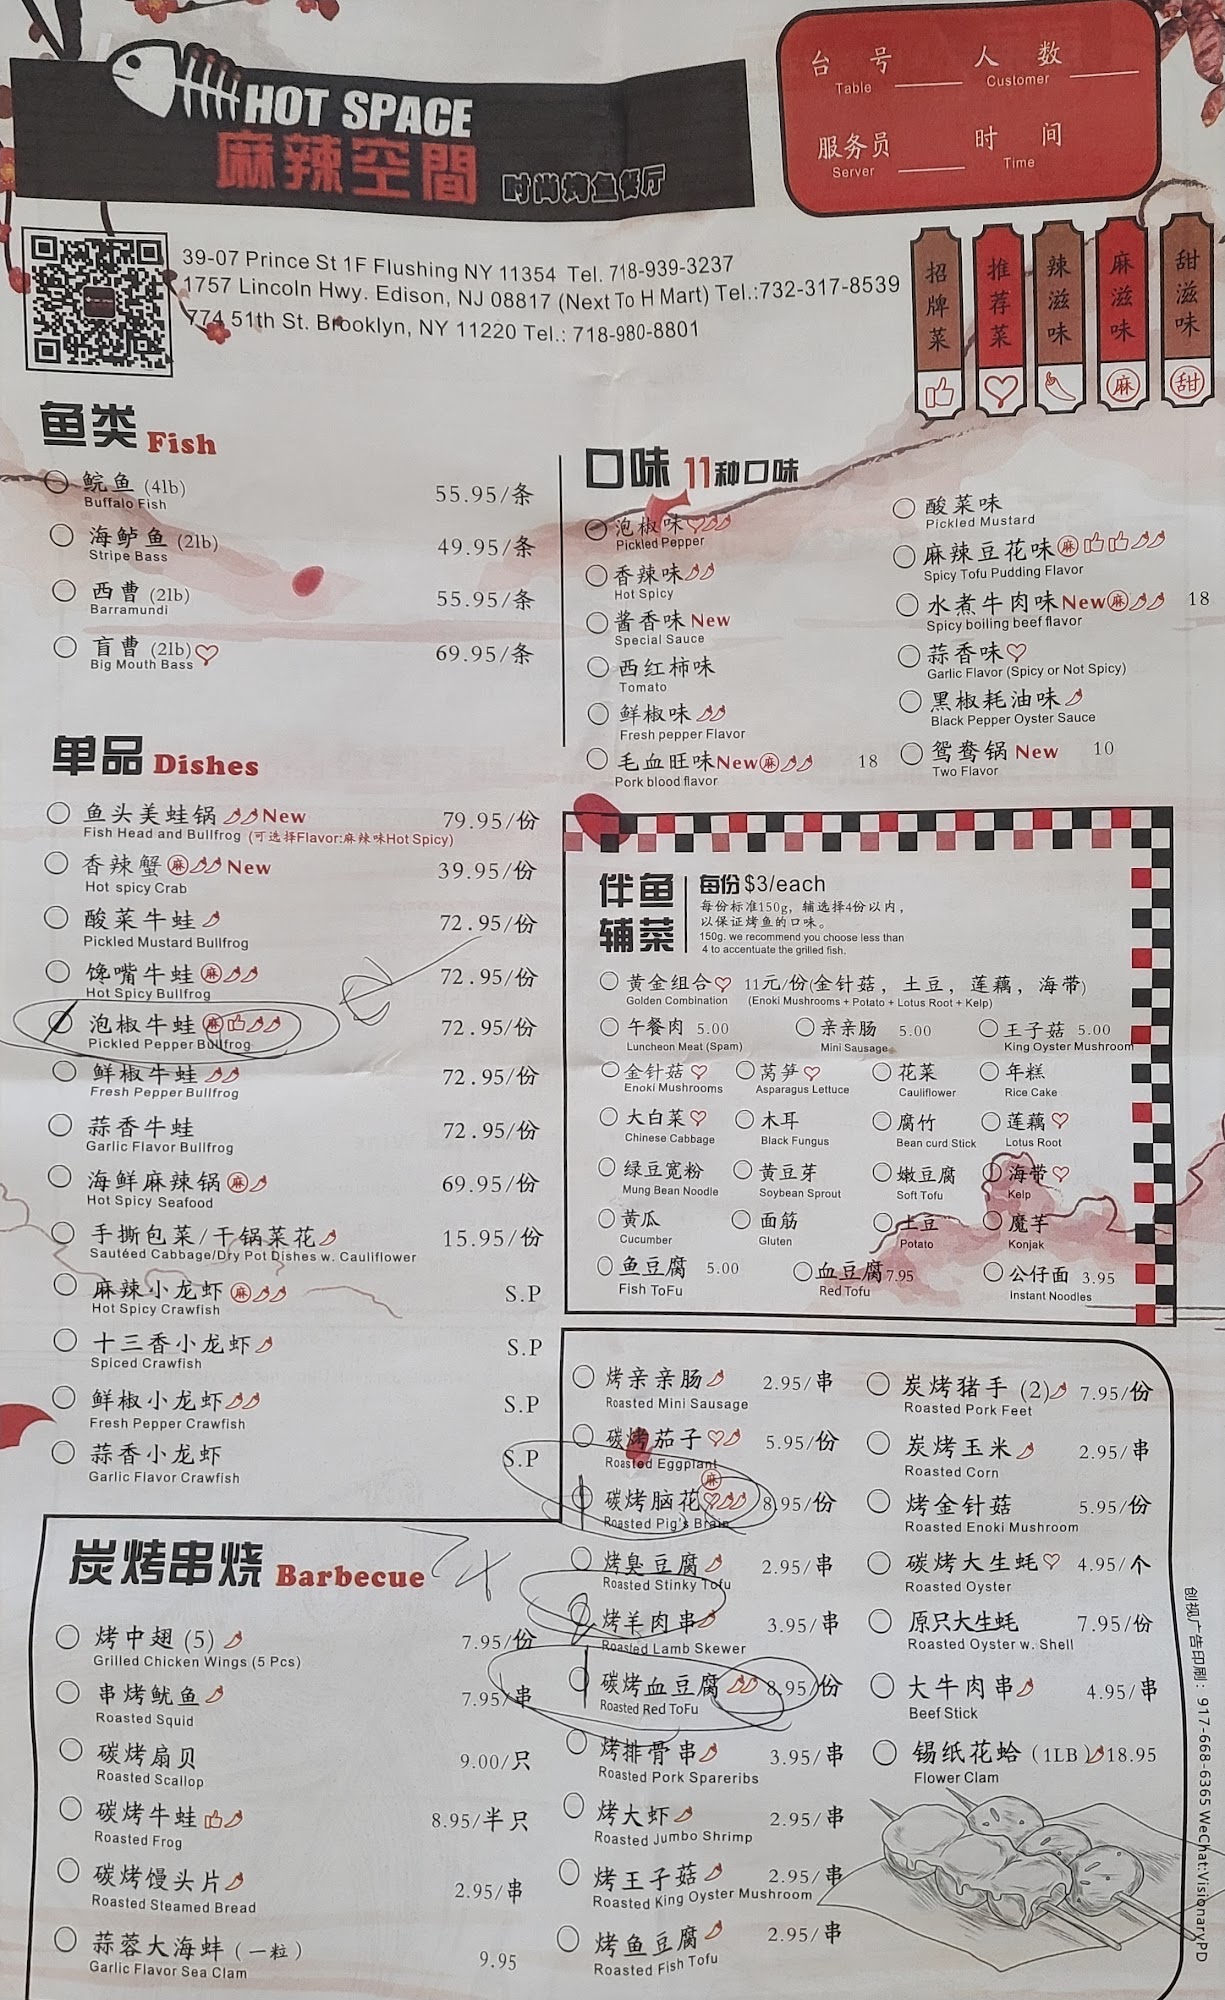 HOT SPACE
麻辣空間 时尚烤鱼餐厅
台号 人数
Table Customer
服务员 时间
Server Time
39-07 Prince St 1F Flushing NY 11354 Tel. 718-939-3237
1757 Lincoln Hwy. Edison, NJ 08817 (Next To H Mart) Tel.:732-317-8539
774 51th St. Brooklyn, NY 11220 Tel.: 718-980-8801
招牌菜
推荐菜
辣滋味
麻滋味
甜滋味
麻
甜
鱼类 Fish
鲩鱼 (4lb) 55.95/条
Buffalo Fish
海鲈鱼 (2lb) 49.95/条
Stripe Bass
西曹 (2lb) 55.95/条
Barramundi
盲曹 (2lb) 69.95/条
Big Mouth Bass
口味 11种口味
泡椒味
Pickled Pepper
香辣味
Hot Spicy
酱香味 New
Special Sauce
西红柿味
Tomato
鲜椒味
Fresh pepper Flavor
毛血旺味 New 麻 18
Pork blood flavor
酸菜味
Pickled Mustard
麻辣豆花味 麻
Spicy Tofu Pudding Flavor
水煮牛肉味 New 麻 18
Spicy boiling beef flavor
蒜香味
Garlic Flavor (Spicy or Not Spicy)
黑椒耗油味
Black Pepper Oyster Sauce
鸳鸯锅 New 10
Two Flavor
单品 Dishes
鱼头美蛙锅 New 79.95/份
Fish Head and Bullfrog (可选择Flavor:麻辣味Hot Spicy)
香辣蟹 麻 New 39.95/份
Hot spicy Crab
酸菜牛蛙 72.95/份
Pickled Mustard Bullfrog
馋嘴牛蛙 麻 72.95/份
Hot Spicy Bullfrog
泡椒牛蛙 麻 72.95/份
Pickled Pepper Bullfrog
鲜椒牛蛙 72.95/份
Fresh Pepper Bullfrog
蒜香牛蛙 72.95/份
Garlic Flavor Bullfrog
海鲜麻辣锅 麻 69.95/份
Hot Spicy Seafood
手撕包菜/干锅菜花 15.95/份
Sautéed Cabbage/Dry Pot Dishes w. Cauliflower
麻辣小龙虾 麻 S.P
Hot Spicy Crawfish
十三香小龙虾 S.P
Spiced Crawfish
鲜椒小龙虾 S.P
Fresh Pepper Crawfish
蒜香小龙虾 S.P
Garlic Flavor Crawfish
伴鱼辅菜 每份 $3/each
每份标准150g，辅选择4份以内，
以保证烤鱼的口味。
150g. we recommend you choose less than
4 to accentuate the grilled fish.
黄金组合 11元/份(金针菇，土豆，莲藕，海带)
Golden Combination (Enoki Mushrooms + Potato + Lotus Root + Kelp)
午餐肉 5.00 亲亲肠 5.00 王子菇 5.00
Luncheon Meat (Spam) Mini Sausage King Oyster Mushroom
金针菇 莴笋 花菜 年糕
Enoki Mushrooms Asparagus Lettuce Cauliflower Rice Cake
大白菜 木耳 腐竹 莲藕
Chinese Cabbage Black Fungus Bean curd Stick Lotus Root
绿豆宽粉 黄豆芽 嫩豆腐 海带
Mung Bean Noodle Soybean Sprout Soft Tofu Kelp
黄瓜 面筋 土豆 魔芋
Cucumber Gluten Potato Konjak
鱼豆腐 5.00 血豆腐 7.95 公仔面 3.95
Fish ToFu Red Tofu Instant Noodles
炭烤串烧 Barbecue
烤中翅 (5) 7.95/份
Grilled Chicken Wings (5 Pcs)
串烤鱿鱼 7.95/串
Roasted Squid
碳烤扇贝 9.00/只
Roasted Scallop
碳烤牛蛙 8.95/半只
Roasted Frog
碳烤馒头片 2.95/串
Roasted Steamed Bread
蒜蓉大海蚌 (一粒) 9.95
Garlic Flavor Sea Clam
烤亲亲肠 2.95/串
Roasted Mini Sausage
碳烤茄子 5.95/份
Roasted Eggplant
碳烤脑花 麻 8.95/份
Roasted Pig's Brain
烤臭豆腐 2.95/串
Roasted Stinky Tofu
烤羊肉串 3.95/串
Roasted Lamb Skewer
碳烤血豆腐 8.95/份
Roasted Red ToFu
烤排骨串 3.95/串
Roasted Pork Spareribs
烤大虾 2.95/串
Roasted Jumbo Shrimp
烤王子菇 2.95/串
Roasted King Oyster Mushroom
烤鱼豆腐 2.95/串
Roasted Fish Tofu
炭烤猪手 (2) 7.95/份
Roasted Pork Feet
炭烤玉米 2.95/串
Roasted Corn
烤金针菇 5.95/份
Roasted Enoki Mushroom
碳烤大生蚝 4.95/个
Roasted Oyster
原只大生蚝 7.95/份
Roasted Oyster w. Shell
大牛肉串 4.95/串
Beef Stick
锡纸花蛤 (1LB) 18.95
Flower Clam
创视广告印刷: 917-668-6365 WeChat:VisionaryPD